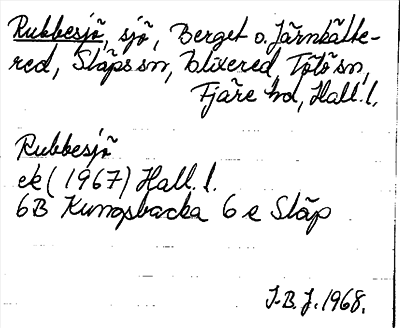 Rubbesjö, sjö, Berget o. Järnkälte-
red, Släps sn, Blixered, Tölö sn,
Fjäre hd, Hall. l.
Rubbesjö
ek (1967) Hall. l.
6B Kungsbacka 6 e Släp
J.B.J. 1968.